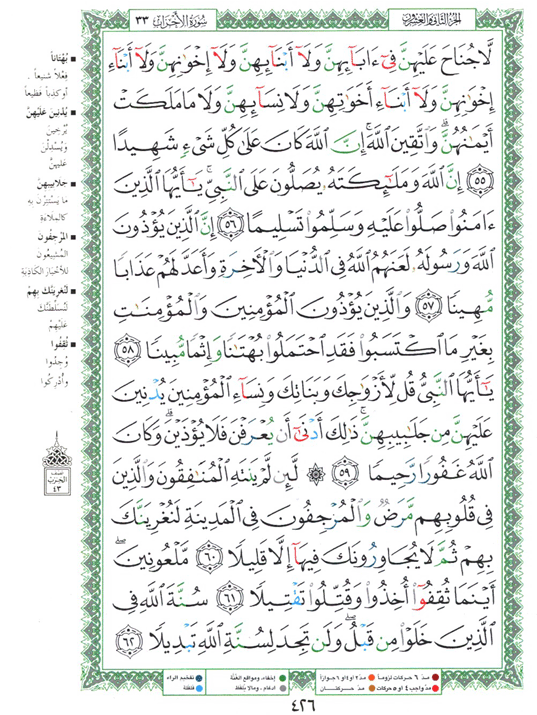 الجزء الثاني والعشرون
سُورَةُ الأَحْزَابِ ٣٣
لَّا جُنَاحَ عَلَيْهِنَّ فِىٓ ءَابَآئِهِنَّ وَلَآ أَبْنَآئِهِنَّ وَلَآ إِخْوَٰنِهِنَّ وَلَآ أَبْنَآءِ
إِخْوَٰنِهِنَّ وَلَآ أَبْنَآءِ أَخَوَٰتِهِنَّ وَلَا نِسَآئِهِنَّ وَلَا مَا مَلَكَتْ
أَيْمَٰنُهُنَّ ۗ وَٱتَّقِينَ ٱللَّهَ ۚ إِنَّ ٱللَّهَ كَانَ عَلَىٰ كُلِّ شَىْءٍ شَهِيدًا
٥٥ إِنَّ ٱللَّهَ وَمَلَٰٓئِكَتَهُۥ يُصَلُّونَ عَلَى ٱلنَّبِىِّ ۚ يَٰٓأَيُّهَا ٱلَّذِينَ
ءَامَنُوا۟ صَلُّوا۟ عَلَيْهِ وَسَلِّمُوا۟ تَسْلِيمًا ٥٦ إِنَّ ٱلَّذِينَ يُؤْذُونَ
ٱللَّهَ وَرَسُولَهُۥ لَعَنَهُمُ ٱللَّهُ فِى ٱلدُّنْيَا وَٱلْءَاخِرَةِ وَأَعَدَّ لَهُمْ عَذَابًا
مُّهِينًا ٥٧ وَٱلَّذِينَ يُؤْذُونَ ٱلْمُؤْمِنِينَ وَٱلْمُؤْمِنَٰتِ
بِغَيْرِ مَا ٱكْتَسَبُوا۟ فَقَدِ ٱحْتَمَلُوا۟ بُهْتَٰنًا وَإِثْمًا مُّبِينًا ٥٨
يَٰٓأَيُّهَا ٱلنَّبِىُّ قُل لِّأَزْوَٰجِكَ وَبَنَاتِكَ وَنِسَآءِ ٱلْمُؤْمِنِينَ يُدْنِينَ
عَلَيْهِنَّ مِن جَلَٰبِيبِهِنَّ ۚ ذَٰلِكَ أَدْنَىٰٓ أَن يُعْرَفْنَ فَلَا يُؤْذَيْنَ ۗ وَكَانَ
ٱللَّهُ غَفُورًا رَّحِيمًا ٥٩ ۞ لَّئِن لَّمْ يَنتَهِ ٱلْمُنَٰفِقُونَ وَٱلَّذِينَ
فِى قُلُوبِهِم مَّرَضٌ وَٱلْمُرْجِفُونَ فِى ٱلْمَدِينَةِ لَنُغْرِيَنَّكَ
بِهِمْ ثُمَّ لَا يُجَاوِرُونَكَ فِيهَآ إِلَّا قَلِيلًا ٦٠ مَّلْعُونِينَ ۖ
أَيْنَمَا ثُقِفُوٓا۟ أُخِذُوا۟ وَقُتِّلُوا۟ تَقْتِيلًا ٦١ سُنَّةَ ٱللَّهِ فِى
ٱلَّذِينَ خَلَوْا۟ مِن قَبْلُ ۖ وَلَن تَجِدَ لِسُنَّةِ ٱللَّهِ تَبْدِيلًا ٦٢
■ بُهْتَاناً
فِعْلاً شَنِيعاً .
أو كذباً فظيعاً
■ يُدْنِينَ عَلَيْهِنَّ
يُرْخِينَ
وَيُسْدِلْنَ
عَلَيْهِنَّ
■ جَلابِيبِهِنَّ
ما يَسْتَتِرْنَ به
كالملاءَةِ
■ المُرْجِفُونَ
المُشِيعُونَ
للأَخْبَارِ الكَاذِبَةِ
■ لَنُغْرِيَنَّكَ بِهِمْ
لَنُسَلِّطَنَّكَ
عَلَيْهِمْ
■ ثُقِفُوا
وُجِدُوا
وأُدْرِكُوا
الحزب
٤٣
مدّ ٦ حركات لزوماً
مدّ ٢ او ٤ او ٦ جوازاً
إخفاء، ومواقع الغُنَّة
تفخيم الراء
مدّ واجب ٤ او ٥ حركات
مدّ حركتان
ادغام ، ومالا يُلفظ
قلقلة
٤٢٦